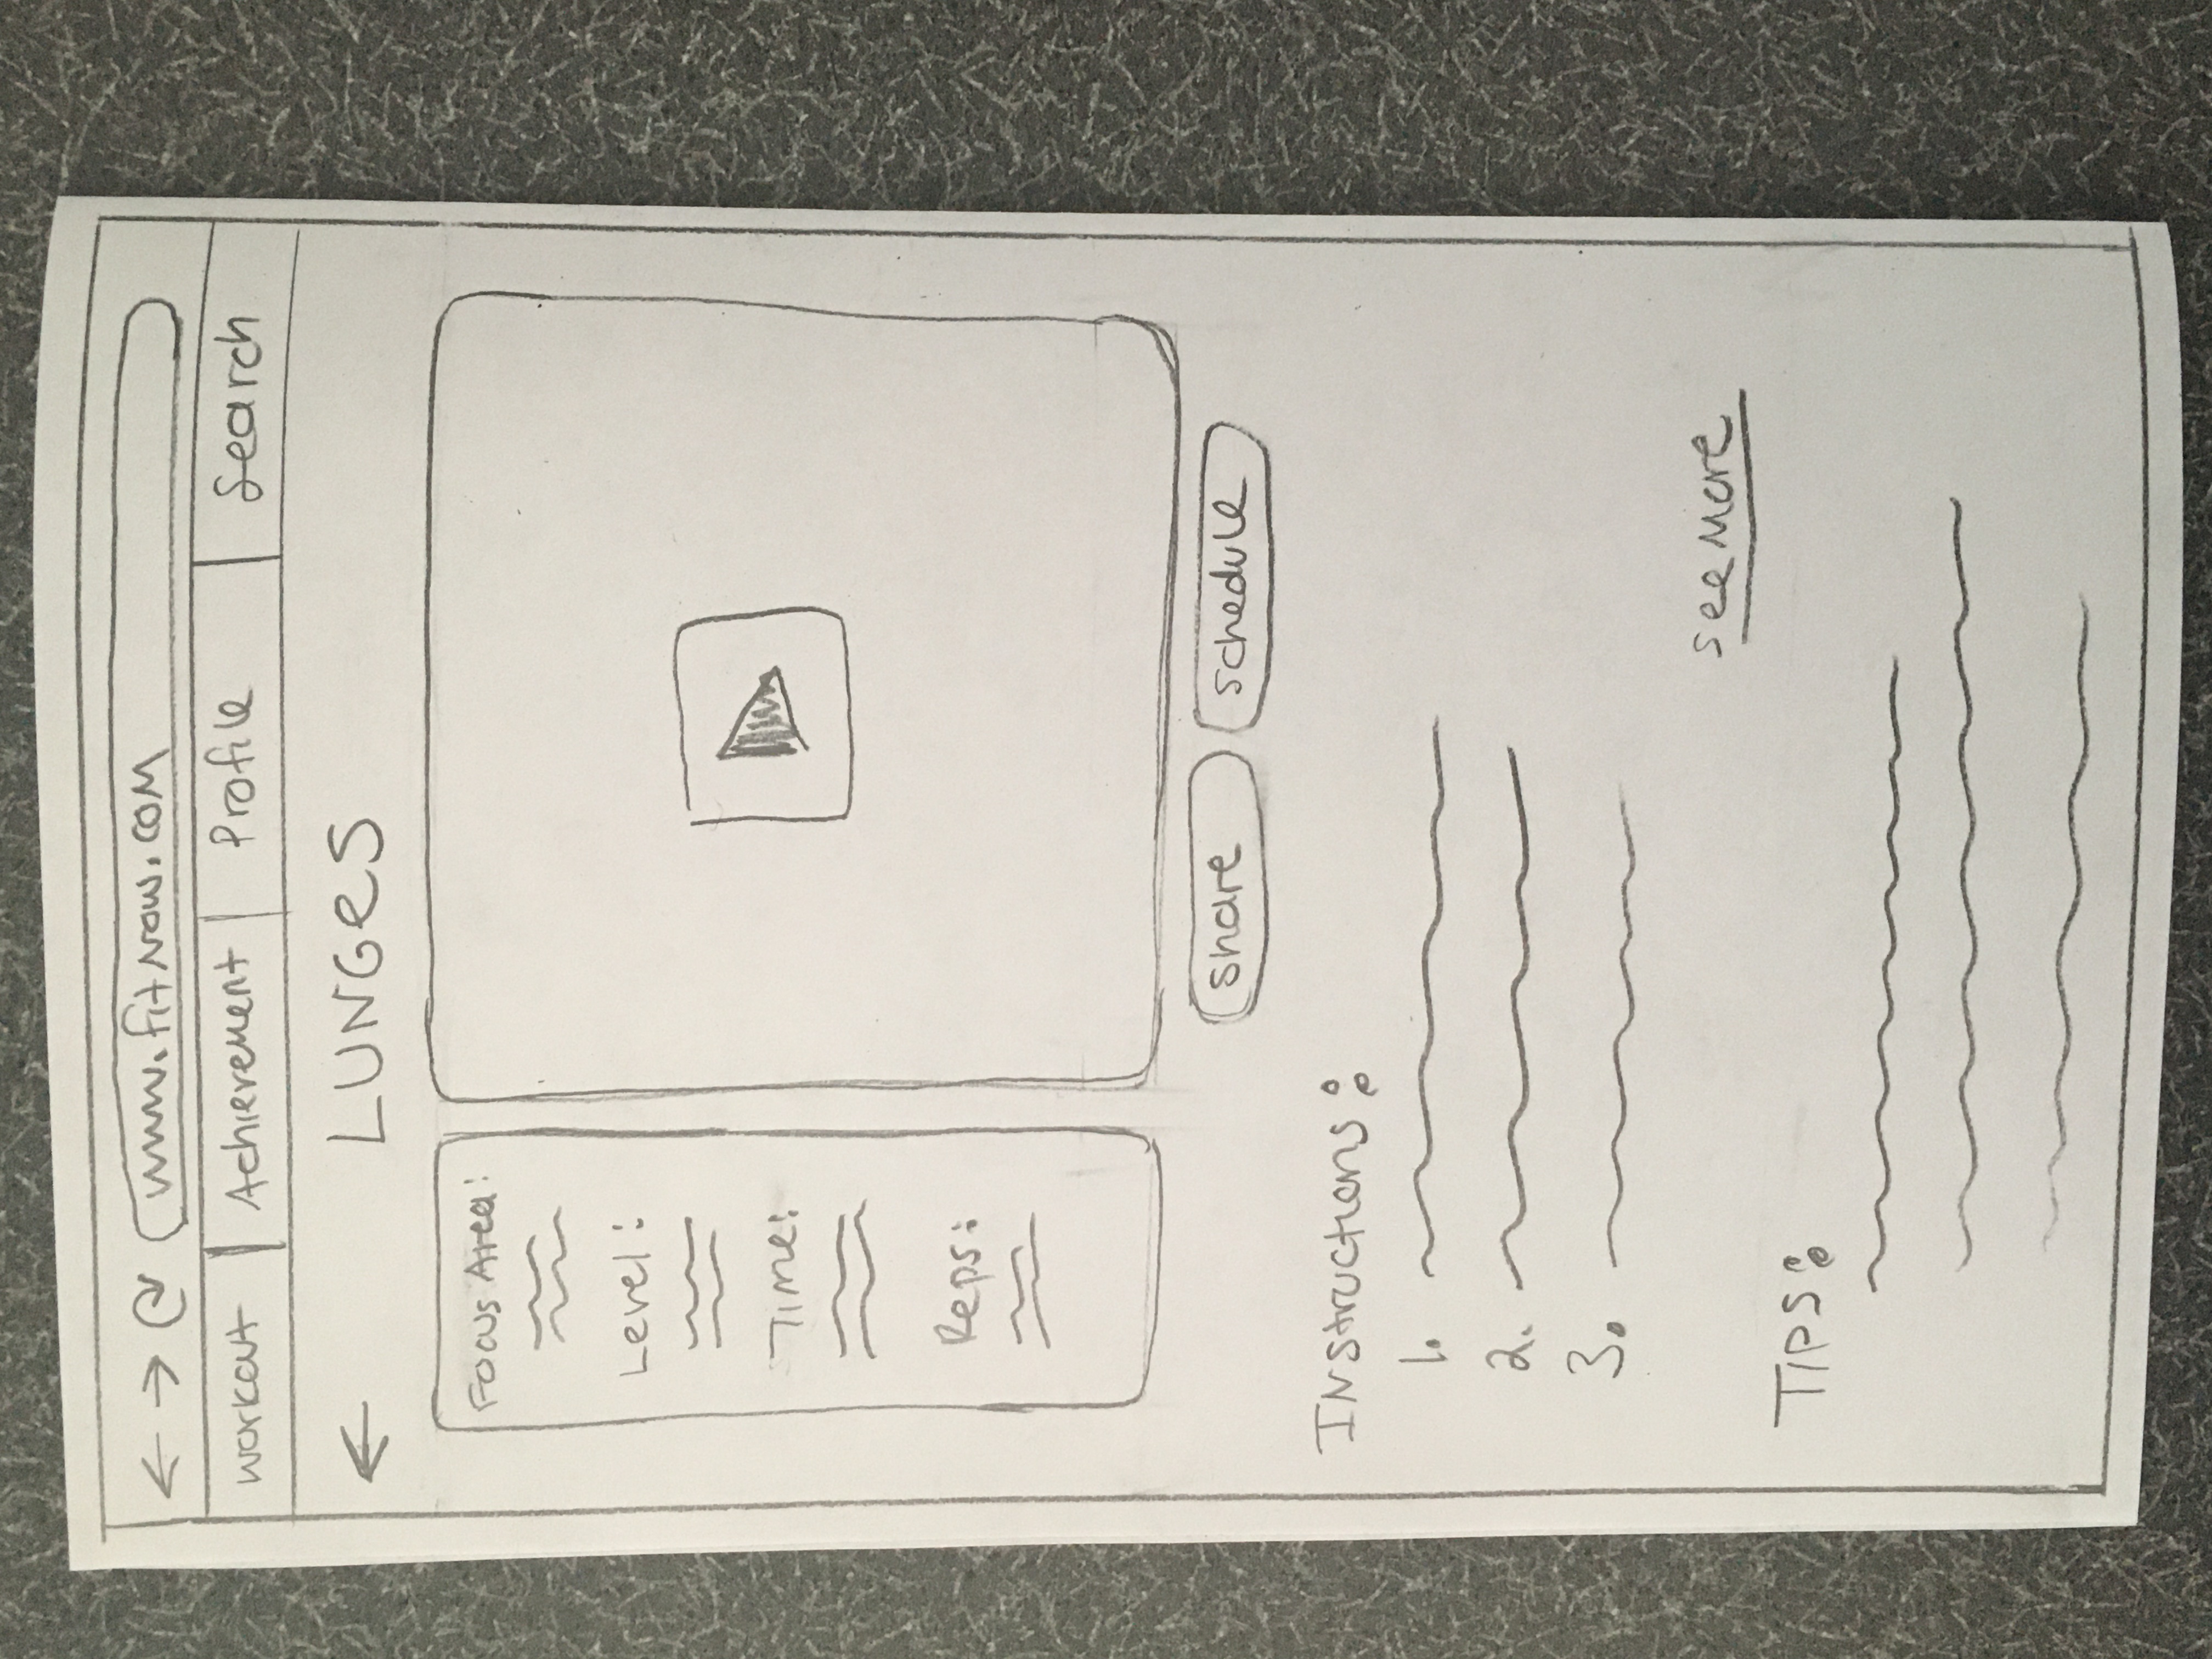 www.fitnow.com
workout Achievement Profile Search
LUNGeS
Focus Area:
Level:
Time:
Reps:
share schedule
Instructions:
1.
2.
3.
see more
TIPS: